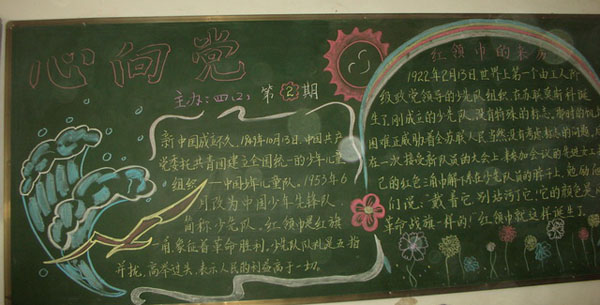 心向党
主办:四(2) 第2期
新中国成立不久,1949年10月13日,中国共产
党委托共青团建立全国统一的少年儿童
组织——中国少年儿童队。1953年6
月改为 中国少年先锋队
简称少先队。红领巾是红旗
一角,象征着革命胜利,少先队队礼是五指
并拢,高举过头,表示人民的利益高于一切。
红领巾的来历
1922年2月13日,世界上第一个由工人阶
级政党领导的少先队组织,在苏联莫斯科诞
生了,刚成立的少先队,没有特殊的标志,当时的
困难正威胁着全苏联人民,当然没有考虑标志的问题,
在一次接受新队员的大会上,参加会议的先进女工
己的红色三角巾解下来,系在少先队员的脖子上,勉励
们说:"戴着它,别玷污了它,它的颜色是
革命战旗一样的"红领巾就这样诞生了。